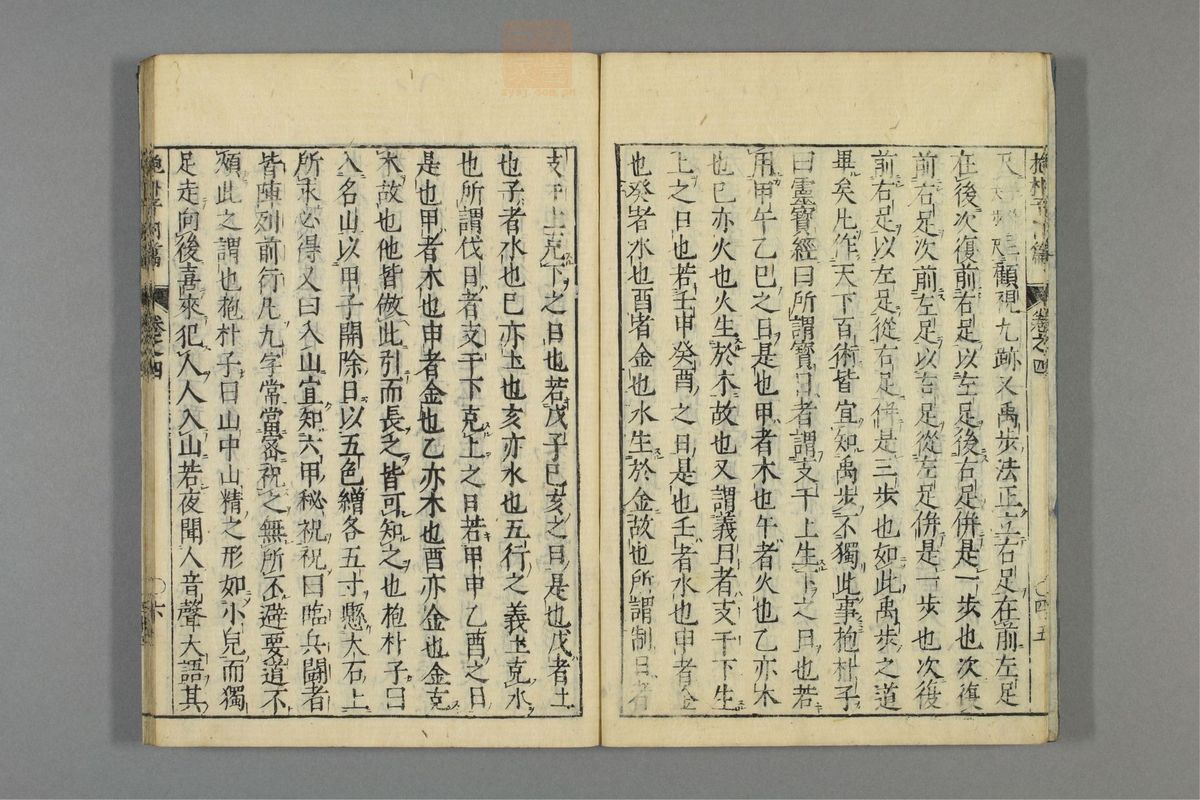 抱朴子內篇 卷之四 〇四ノ五
顧視九跡又禹步法正立右足在前左足
在後次復前右足以左足後右足併是一步也次復
前右足次前左足以右足從左足併是一步也次後
前右足以左足從右足併是三步也如此禹步之道
畢矣凡作天下百術皆宜知禹步不獨此事抱朴子
曰靈寶經曰所謂寶日者謂支干上生下之日也若
用甲午乙巳之日是也甲者木也午者火也乙亦木
也巳亦火也火生於木故也又謂義日者支干下生
上之日也若壬申癸酉之日是也壬者水也申者金
也癸者水也酉者金也水生於金故也所謂制日者
支干上克下之日也若戊子巳亥之日是也戊者土
也子者水也巳亦土也亥亦水也五行之義土克水
也所謂伐日者支干下克上之日若甲申乙酉之日
是也甲者木也申者金也乙亦木也酉亦金也金克
木故也他皆倣此引而長之皆可知之也抱朴子曰
入名山以甲子開除日以五色繒各五寸懸大石上
所求必得又曰入山宜知六甲秘祝祝曰臨兵鬬者
皆陣列前行凡九字常當密祝之無所不避要道不
煩此之謂也抱朴子曰山中山精之形如小兒而獨
足走向後喜來犯人人入山若夜聞人音聲大語其
抱朴子內篇 卷之四 〇六